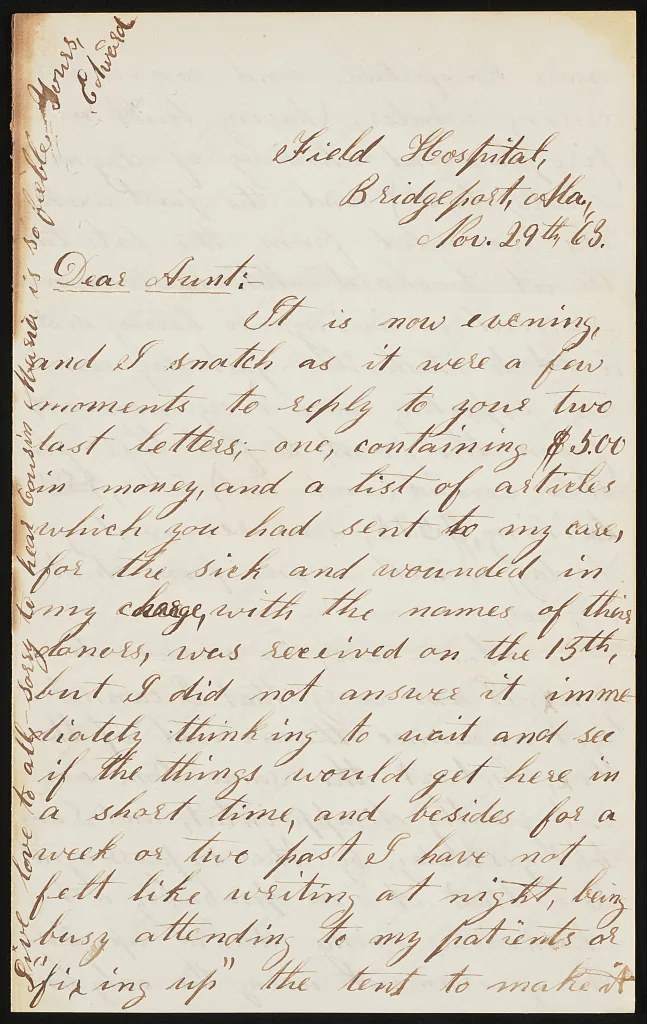 Field Hospital,
Bridgeport, Ala.,
Nov. 29th, 63.
Dear Aunt:-
It is now evening,
and I snatch as it were a few
moments to reply to your two
last letters;- one, containing $5.00
in money, and a list of articles
which you had sent to my care,
for the sick and wounded in
my charge, with the names of their
donors, was received on the 15th,
but I did not answer it imme
diately thinking to wait and see
if the things would get here in
a short time, and besides for a
week or two past I have not
felt like writing at night, being
busy attending to my patients or
"fixing up" the tent to make it
Give love to all, sorry to hear Cousin Maria is so feeble. Yours,
Edward